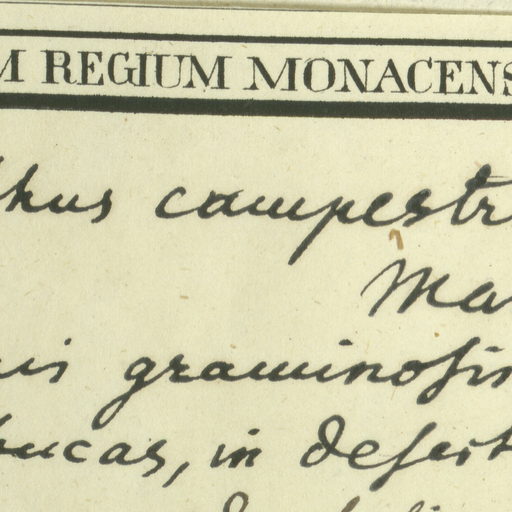 M REGIUM MONACENS
thus campestr
Ma
is graminosis
bucas, in desert